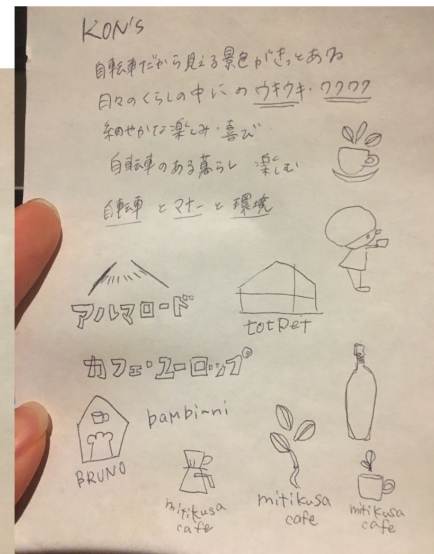 KON's
自転車だから見える景色がきっとある
日々のくらしの中にの ウキウキ・ワクワク
細やかな楽しみ・喜び
自転車のある暮らし 楽しむ
自転車 と マナー と 環境
アルマロード
totPet
カフェ・ユーロップ
bambinni
BRUNO
mitikusa
cafe
mitikusa
cafe
mitikusa
cafe